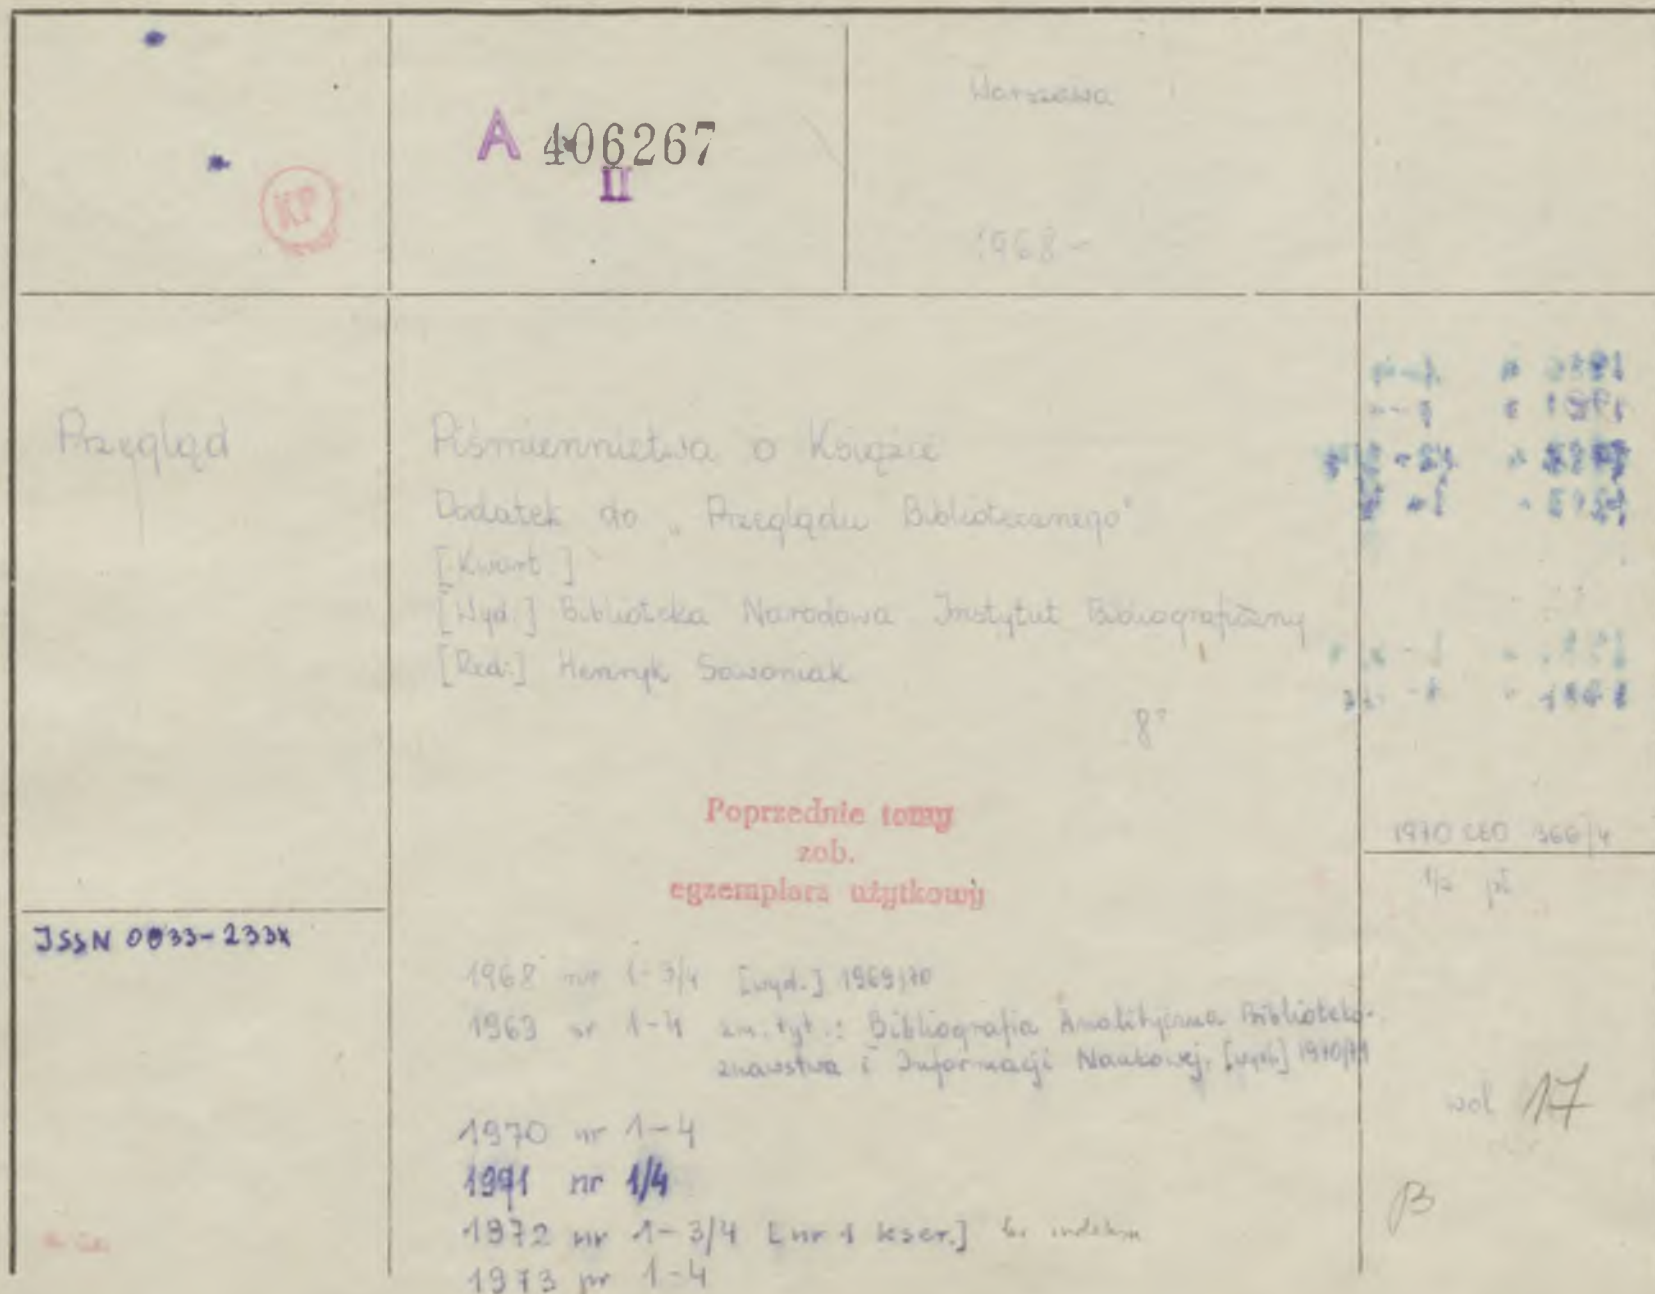 A 406267
II
Warszawa
1968 -
KP
Przegląd
Piśmiennictwa o Książce
Dodatek do „Przeglądu Bibliotecznego"
[Kwart.]
[Wyd.] Biblioteka Narodowa Instytut Bibliograficzny
[Red.] Henryk Sawoniak
8°
Poprzednie tomy
zob.
egzemplarz użytkowy
1970 CEO 366/4
1/2 pł
ISSN 0033-233X
1968 nr 1-3/4 [wyd.] 1969/70
1969 nr 1-4 zm. tyt.: Bibliografia Analityczna Biblioteko-
znawstwa i Informacji Naukowej. [wyd.] 1970/71
1970 nr 1-4
1971 nr 1/4
1972 nr 1-3/4 [nr 1 kser.]
1973 nr 1-4
wol 17
B